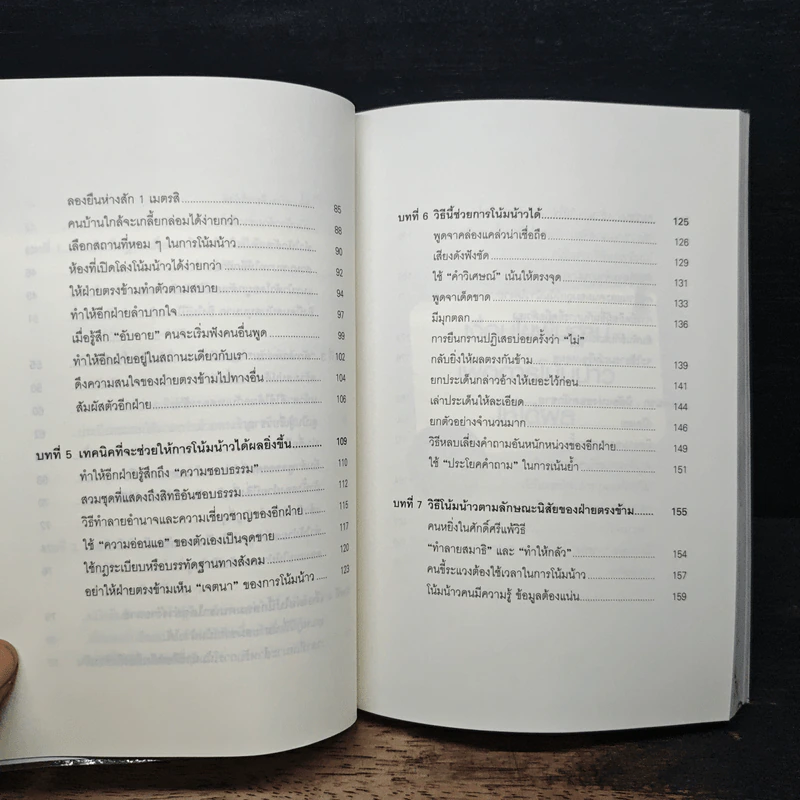 ลองยืนห่างสัก 1 เมตรสิ 85
คนบ้านใกล้จะเกลี้ยกล่อมได้ง่ายกว่า 88
เลือกสถานที่หอม ๆ ในการโน้มน้าว 90
ห้องที่เปิดโล่งโน้มน้าวได้ง่ายกว่า 92
ให้ฝ่ายตรงข้ามทำตัวตามสบาย 94
ทำให้อีกฝ่ายลำบากใจ 97
เมื่อรู้สึก “อับอาย” คนจะเริ่มฟังคนอื่นพูด 99
ทำให้อีกฝ่ายอยู่ในสถานะเดียวกับเรา 102
ดึงความสนใจของฝ่ายตรงข้ามไปทางอื่น 104
สัมผัสตัวอีกฝ่าย 106
บทที่ 5 เทคนิคที่จะช่วยให้การโน้มน้าวได้ผลยิ่งขึ้น 109
ทำให้อีกฝ่ายรู้สึกถึง “ความชอบธรรม” 110
สวมชุดที่แสดงถึงสิทธิอันชอบธรรม 112
วิธีทำลายอำนาจและความเชี่ยวชาญของอีกฝ่าย 115
ใช้ “ความอ่อนแอ” ของตัวเองเป็นจุดขาย 117
ใช้กฎระเบียบหรือบรรทัดฐานทางสังคม 120
อย่าให้ฝ่ายตรงข้ามเห็น “เจตนา” ของการโน้มน้าว 123
บทที่ 6 วิธีนี้ช่วยการโน้มน้าวได้ 125
พูดจาคล่องแคล่วน่าเชื่อถือ 126
เสียงดังฟังชัด 129
ใช้ “คำวิเศษณ์” เน้นให้ตรงจุด 131
พูดจาเด็ดขาด 133
มีมุกตลก 136
การยืนกรานปฏิเสธบ่อยครั้งว่า “ไม่”
กลับยิ่งให้ผลตรงกันข้าม 139
ยกประเด็นกล่าวอ้างให้เยอะไว้ก่อน 141
เล่าประเด็นให้ละเอียด 144
ยกตัวอย่างจำนวนมาก 146
วิธีหลบเลี่ยงคำถามอันหนักหน่วงของอีกฝ่าย 149
ใช้ “ประโยคคำถาม” ในการเน้นย้ำ 151
บทที่ 7 วิธีโน้มน้าวตามลักษณะนิสัยของฝ่ายตรงข้าม 155
คนหยิ่งในศักดิ์ศรีแพ้วิธี
“ทำลายสมาธิ” และ “ทำให้กลัว” 154
คนขี้ระแวงต้องใช้เวลาในการโน้มน้าว 157
โน้มน้าวคนมีความรู้ ข้อมูลต้องแน่น 159